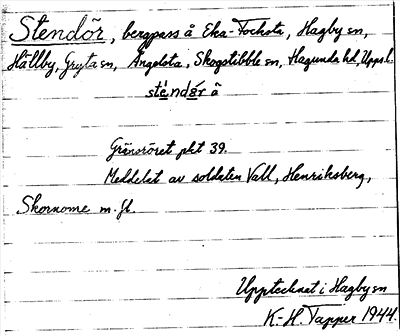 Stendör, bergpass å Eka-Focksta, Hagby sn,
Hällby, Gryta sn, Ängelsta, Skogstibble sn, Hagunda hd, Upps. l.
sténdǟr å
Gränsröset pkt 39.
Meddelat av soldaten Vall, Henriksberg,
Skornome m. fl.
Upptecknat i Hagby sn
K-H. Tapper 1944.